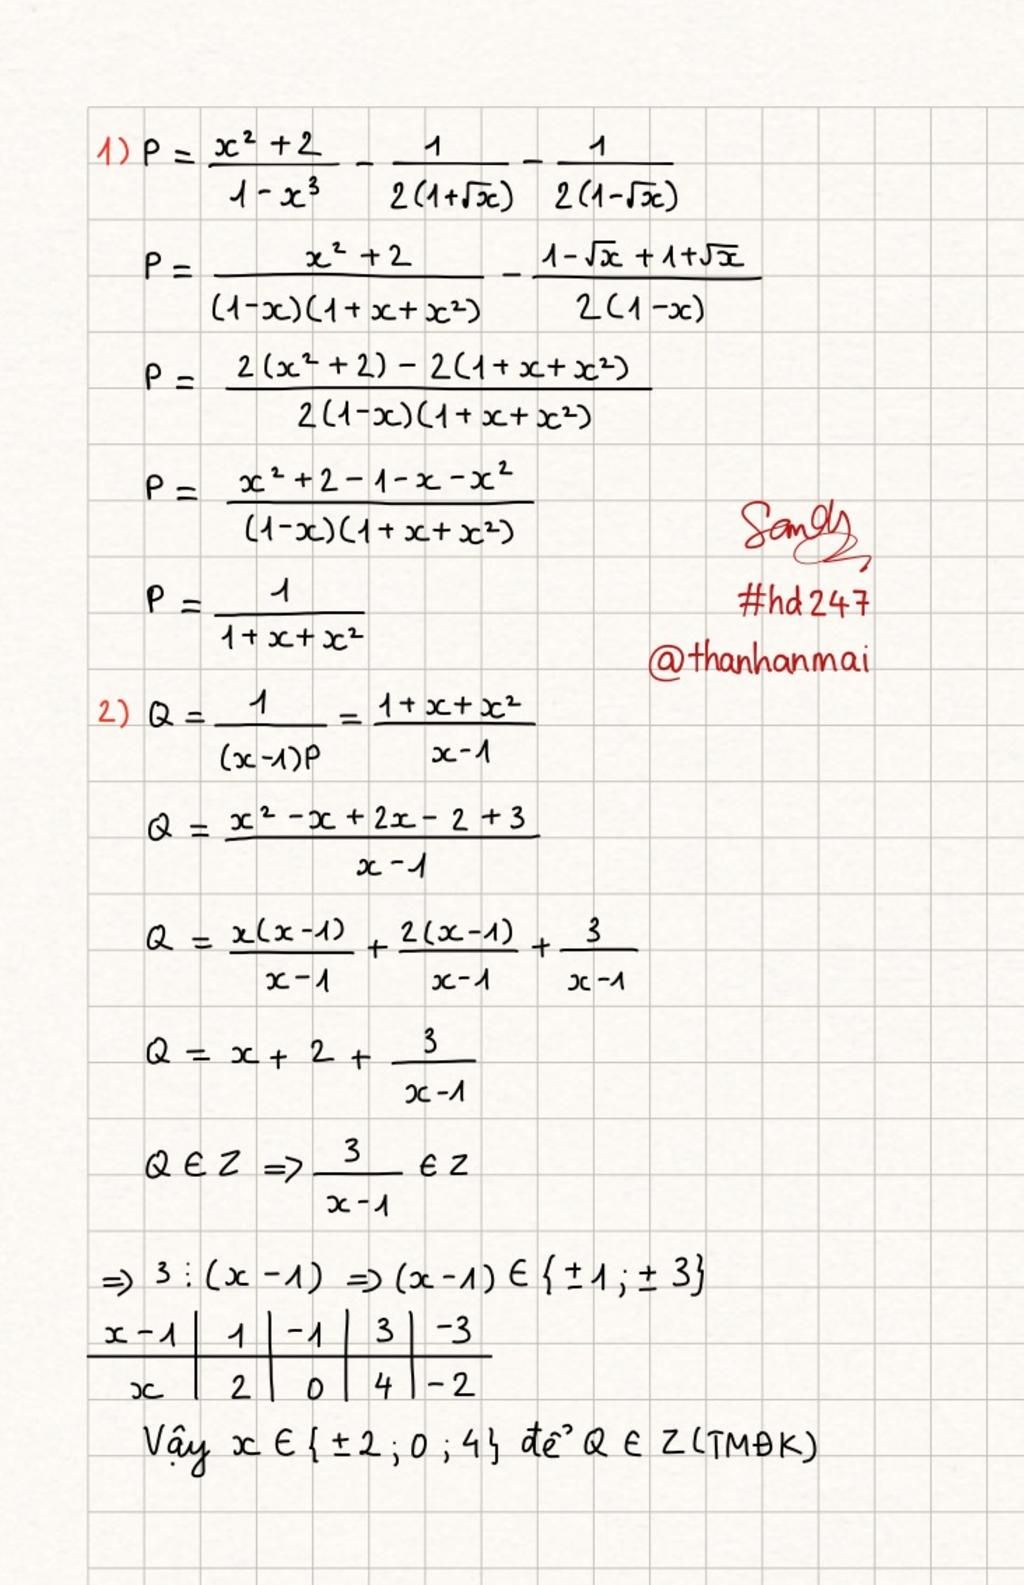 1) P = x² + 2 / 1 - x³ - 1 / 2(1+√x) - 1 / 2(1-√x)
P = x² + 2 / (1-x)(1 + x + x²) - 1-√x + 1+√x / 2(1-x)
P = 2(x² + 2) - 2(1 + x + x²) / 2(1-x)(1 + x + x²)
P = x² + 2 - 1 - x - x² / (1-x)(1 + x + x²)
Sandy
#hd247
P = 1 / 1 + x + x²
@thanhanmai
2) Q = 1 / (x-1)P = 1 + x + x² / x-1
Q = x² - x + 2x - 2 + 3 / x-1
Q = x(x-1) / x-1 + 2(x-1) / x-1 + 3 / x-1
Q = x + 2 + 3 / x-1
Q ∈ Z => 3 / x-1 ∈ Z
=> 3 ⋮ (x-1) => (x-1) ∈ {±1; ±3}
x-1 | 1 | -1 | 3 | -3
x | 2 | 0 | 4 | -2
Vậy x ∈ {±2; 0; 4} để Q ∈ Z (TMĐK)